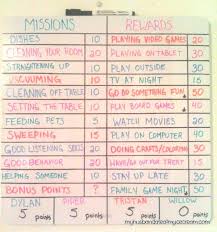 MISSIONS REWARDS
DISHES 10 PLAYING VIDEO GAMES 20
CLEANING YOUR ROOM 20 PLAYING ON TABLET 30
STRAIGHTENING UP 10 PLAY OUTSIDE 30
VACUUMING 10 TV AT NIGHT 15
CLEANING OFF TABLE 10 GO DO SOMETHING FUN 50
SETTING THE TABLE 10 PLAY BOARD GAMES 40
FEEDING PETS 5 WATCH MOVIES 20
SWEEPING 15 PLAY ON COMPUTER 40
GOOD LISTENING 5 DOING CRAFTS/COLORING 30
GOOD BEHAVIOR 20 HAVE/GO OUT FOR TREAT 15
HELPING 10 STAY UP LATE 30
BONUS POINTS ? FAMILY GAME NIGHT 50
DYLAN PIPER TRISTAN WILLOW
5 points 5 points 5 points 0 points